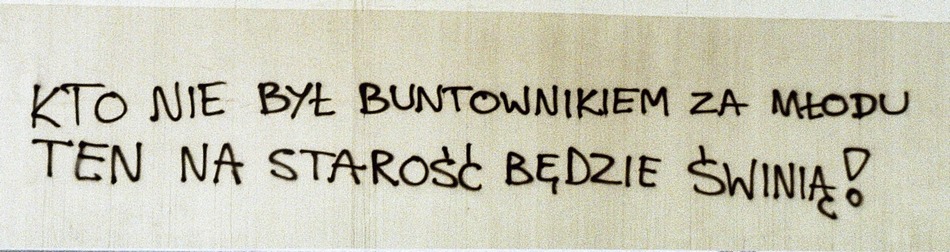 KTO NIE BYŁ BUNTOWNIKIEM ZA MŁODU
TEN NA STAROŚĆ BĘDZIE ŚWINIĄ!